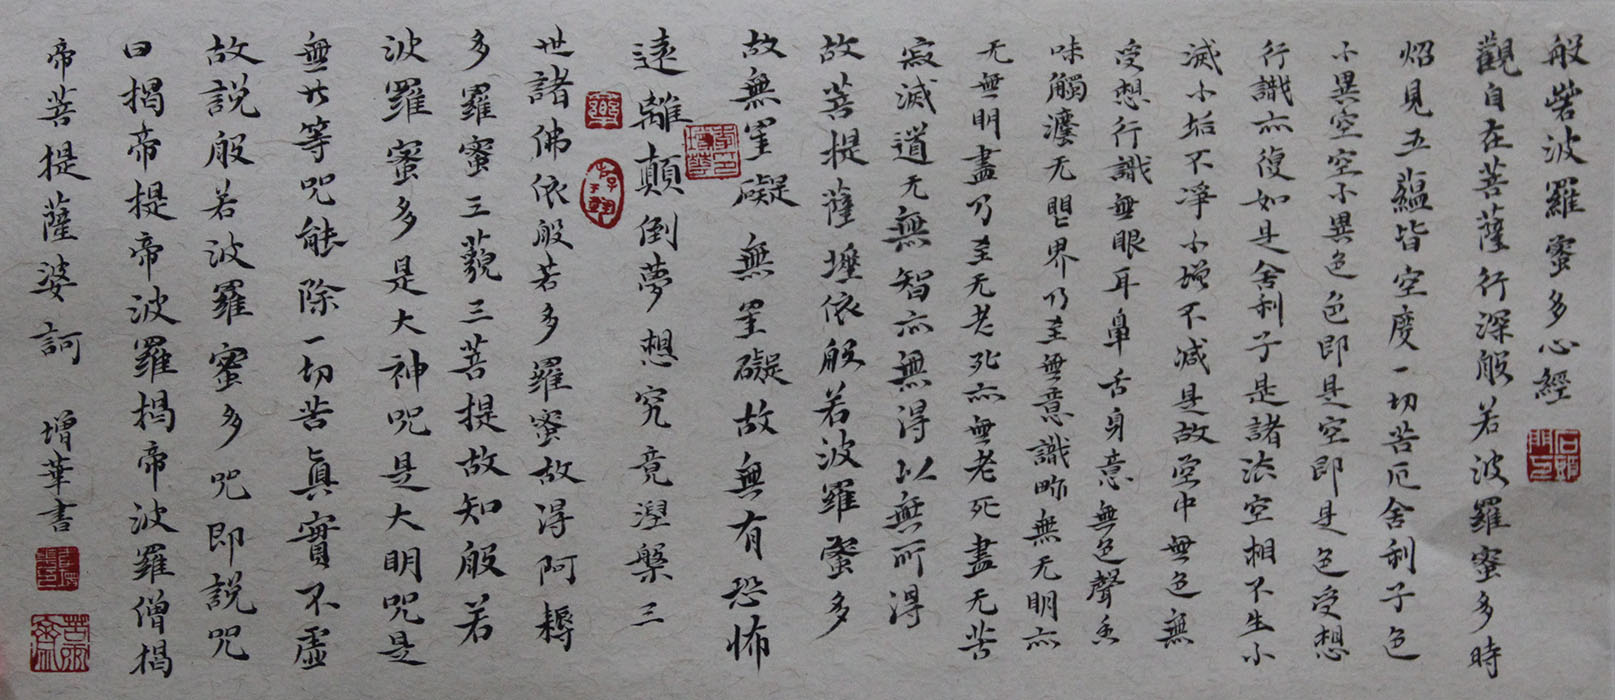 般若波羅蜜多心經
觀自在菩薩行深般若波羅蜜多時
炤見五蘊皆空度一切苦厄舍利子色
不異空空不異色色即是空即是色受想
行識亦復如是舍利子是諸法空相不生不
滅不垢不淨不增不減是故空中無色無
受想行識無眼耳鼻舌身意無色聲香
味觸法无眼界乃至無意識界無无明亦
无無明盡乃至无老死亦無老死盡无苦
寂滅道无無智亦無得以無所得
故菩提薩埵依般若波羅蜜多
故無罣礙無罣礙故無有恐怖
遠離顛倒夢想究竟涅槃三
世諸佛依般若多羅蜜故得阿耨
多羅蜜三藐三菩提故知般若
波羅蜜多是大神咒是大明咒是
無等咒能除一切苦真實不虛
故說般若波羅蜜多咒即說咒
曰揭帝提帝波羅揭帝波羅僧揭
帝菩提薩婆訶 增華書